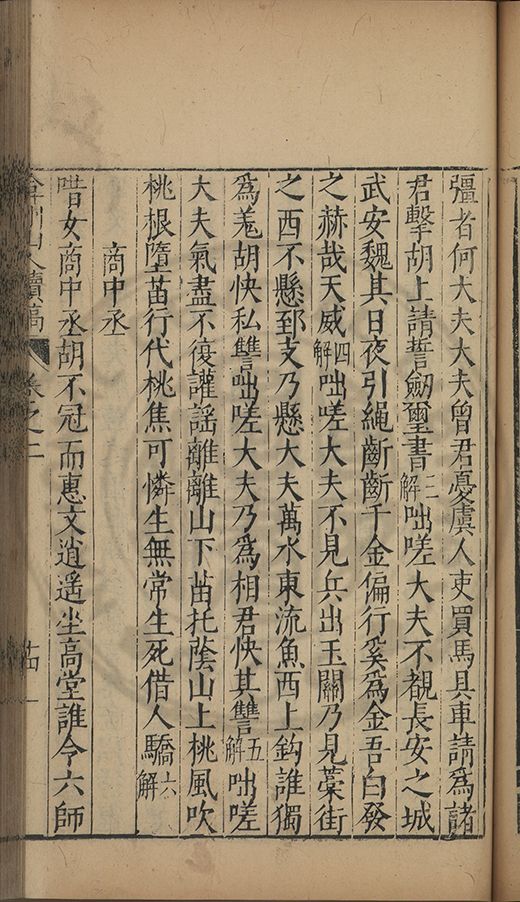 彊者何大夫大夫曾君憂虞人吏買馬具車請為諸
君擊胡上請誓劒璽書三解咄嗟大夫不覩長安之城
武安魏其日夜引繩齗齗千金偏行奚為金吾白發
之赫哉天威四解咄嗟大夫不見兵出玉關乃見藁街
之西不懸郅支乃懸大夫萬水東流魚西上鈎誰獨
為羗胡快私讐咄嗟大夫乃為相君快其讐五解咄嗟
大夫氣盡不復讙謡離離山下苗托蔭山上桃風吹
桃根墮苗行代桃焦可憐生無常生死借人驕六解
商中丞
唶女商中丞胡不冠而惠文逍遥坐高堂誰令六師
山人續稿 卷之二